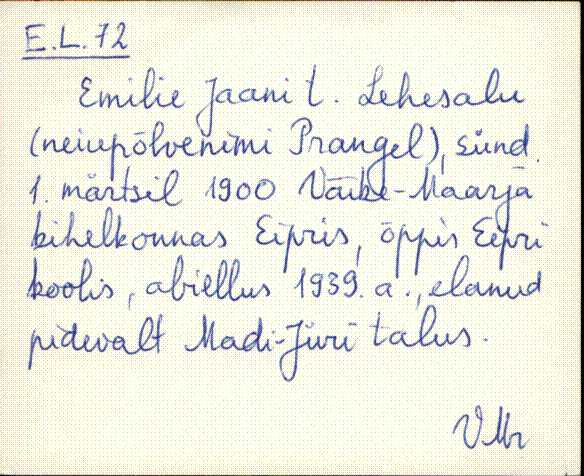 E.L.72
Emilie Jaani t. Lehesalu
(neiupõlvenimi Prangel), sünd.
1. märtsil 1900 Väike-Maarja
kihelkonnas Eipris, õppis Eipri
koolis, abiellus 1939. a., elanud
pidevalt Madi-Jüri talus.
VMr